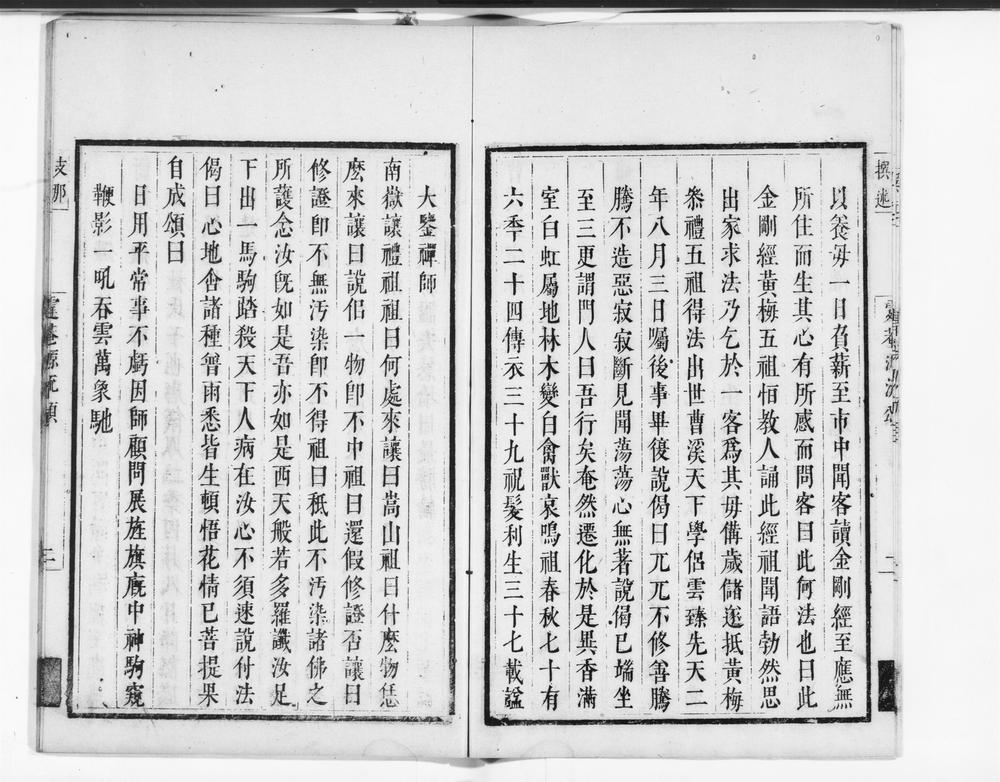 以養母一日負薪至市中聞客讀金剛經至應無
所住而生其心有所感而問客曰此何法也曰此
金剛經黃梅五祖恒教人誦此經祖聞語勃然思
出家求法乃乞於一客爲其母備歲儲遂抵黃梅
叅禮五祖得法出世曹溪天下學侶雲臻先天二
年八月三日囑後事畢復說偈曰兀兀不修善騰
騰不造惡寂寂斷見聞蕩蕩心無著說偈已端坐
至三更謂門人曰吾行矣奄然遷化於是異香滿
室白虹屬地林木變白禽獸哀鳴祖春秋七十有
六季二十四傳衣三十九祝髮利生三十七載諡
大鑒禪師
南嶽讓禮祖祖曰何處來讓曰嵩山祖曰什麽物恁
麽來讓曰說佀一物卽不中祖曰還假修證否讓曰
修證卽不無汚染卽不得祖曰秪此不汚染諸佛之
所護念汝旣如是吾亦如是西天般若多羅讖汝足
下出一馬駒踏殺天下人病在汝心不須速說付法
偈曰心地含諸種普雨悉皆生頓悟花情已菩提果
自成頌曰
日用平常事不虧因師顧問展旌旗廐中神駒窺
鞭影一吼吞雲萬象馳
撰述
支那
二